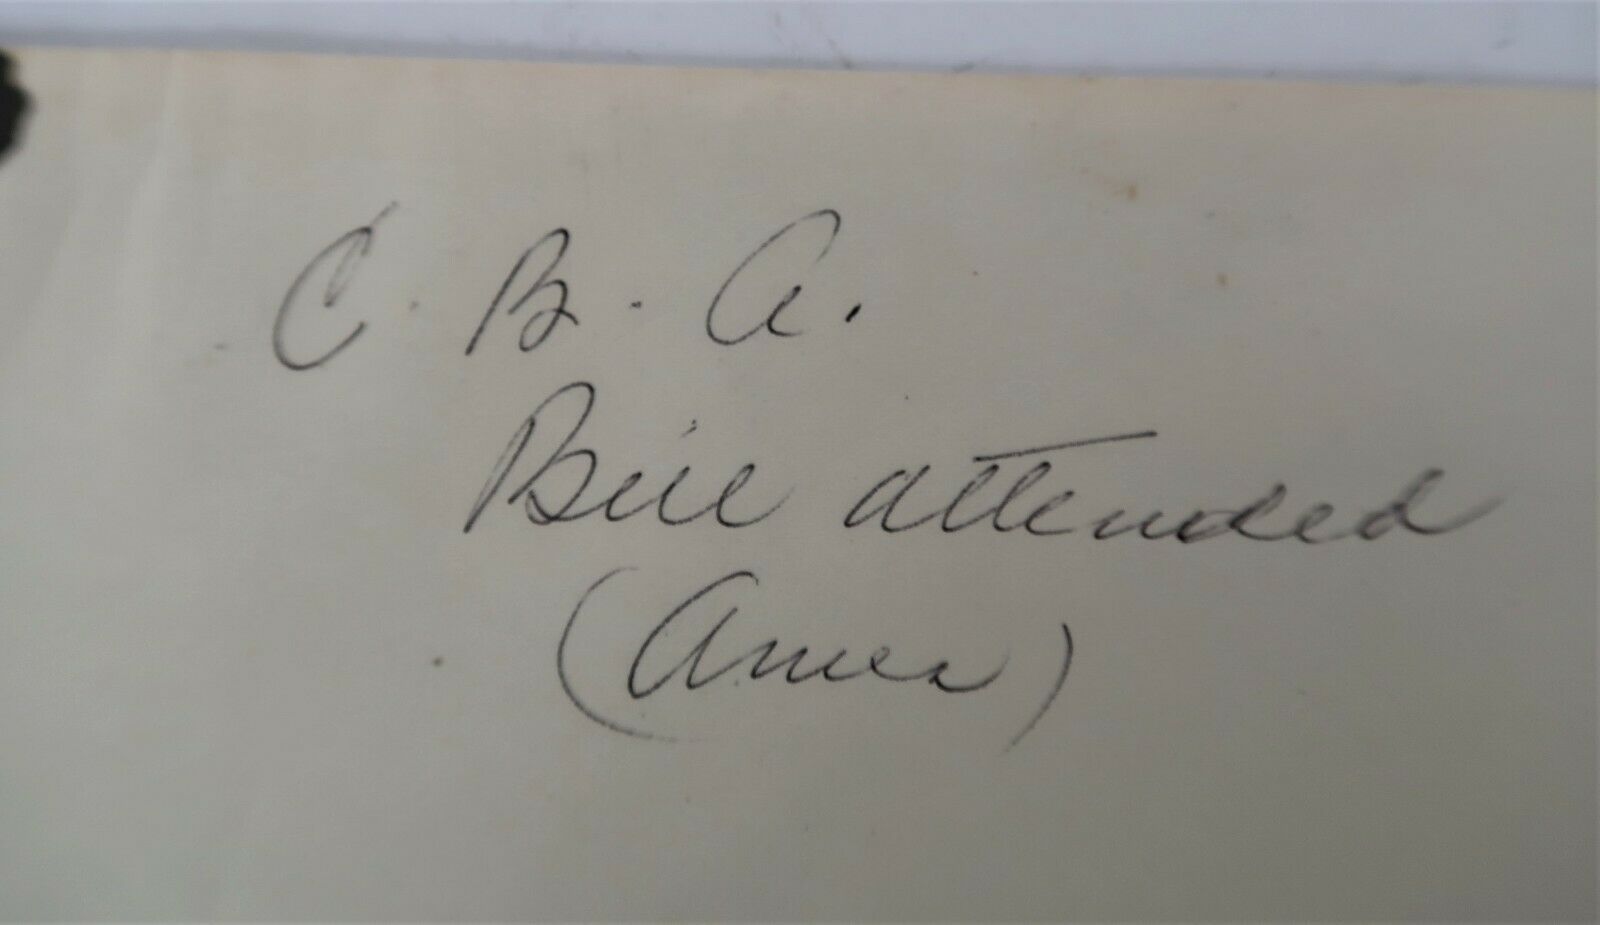 C. B. A.
Bill attended
(Ames)